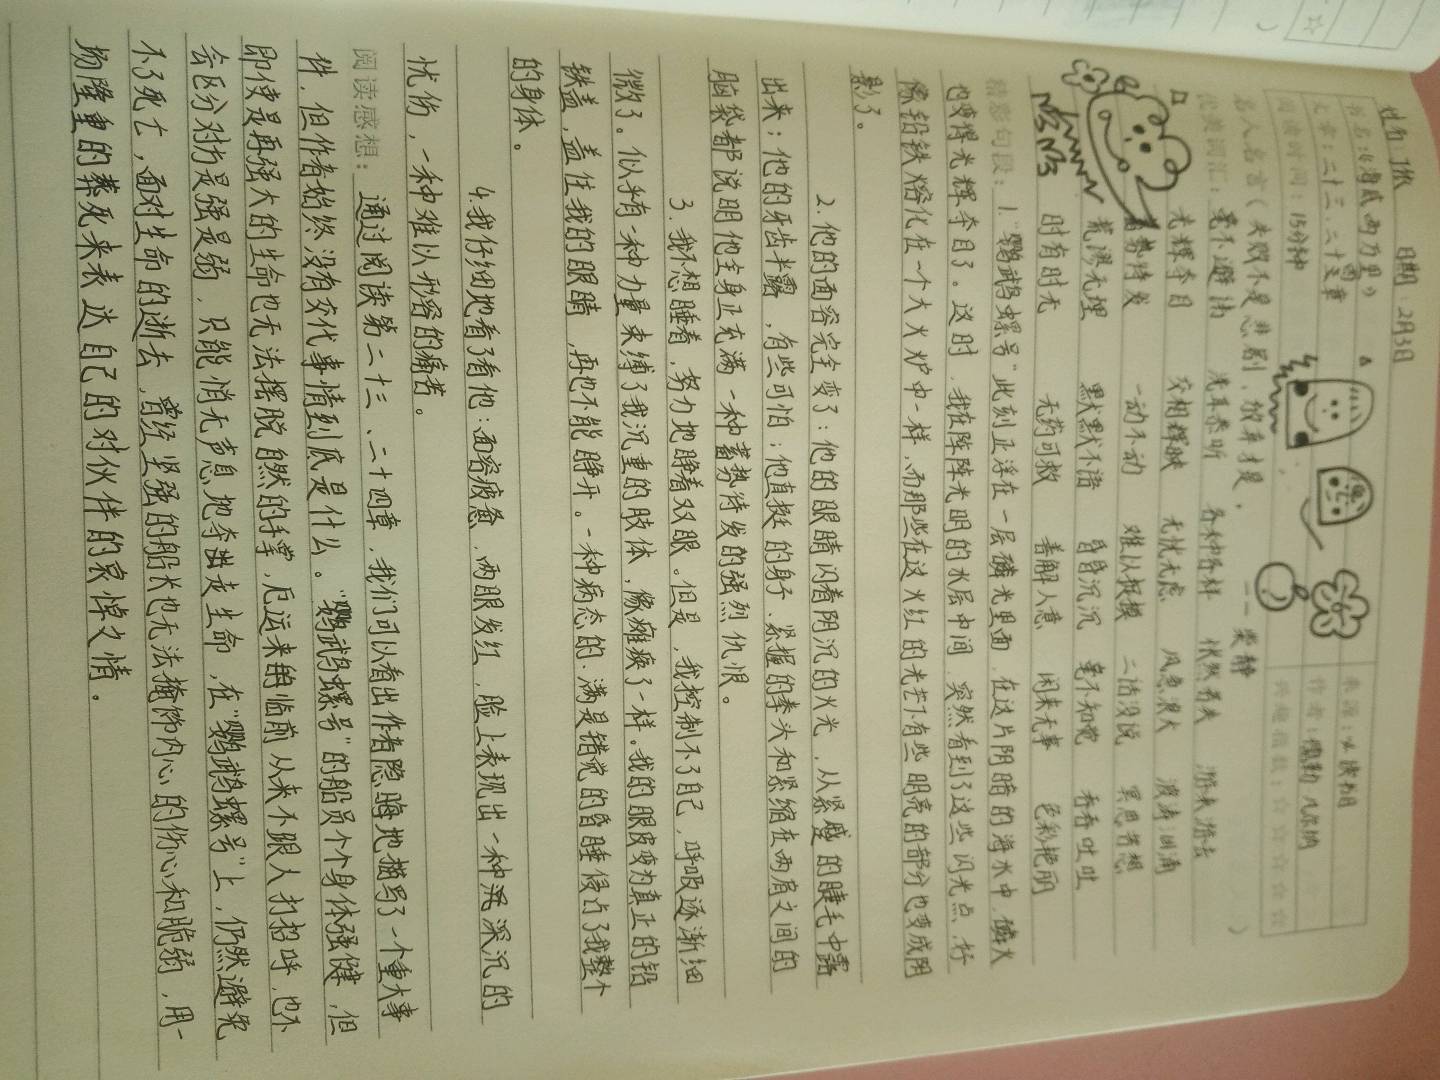 日期：2月3日
书名：《海底两万里》
来源：必读书目
文章：二十三、二十四章
阅读时间：15分钟
名人名言（失败不是悲剧，放弃才是。
——柴静）
优美词汇：毫不避讳 洗耳恭听 各种各样 怅然若失 游来游去
光辉夺目 交相辉映 无忧无虑 风急浪大 波涛汹涌
蓄势待发 一动不动 难以捉摸 二话没说 冥思苦想
荒谬无理 默默不语 昏昏沉沉 毫不知觉 吞吞吐吐
时有时无 无药可救 善解人意 闲来无事 色彩艳丽
精彩句段：1.“鹦鹉螺号”此刻正浮在一层磷光里面，在这片阴暗的海水中，磷火
也变得光辉夺目了。这时，我在阵阵光明的水层中间，突然看到了这些闪光点，好
像铅铁熔化在一个大火炉中一样，而那些在这火红的光芒下有些明亮的部分也变成阴
影了。
2.他的面容完全变了：他的眼睛闪着阴沉的火光，从紧蹙的睫毛中露
出来；他的牙齿半露，有些可怕；他直挺的身子、紧握的拳头和紧缩在两肩之间的
脑袋都说明他全身正充满一种蓄势待发的强烈仇恨。
3.我不想睡着，努力地睁着双眼。但是，我控制不了自己，呼吸逐渐细
微了。似乎有一种力量束缚了我沉重的肢体，像瘫痪了一样。我的眼皮变为真正的铅
铁盖，盖住我的眼睛，再也不能睁开。一种病态的、满是错觉的昏睡侵占了我整个
的身体。
4.我仔细地看了看他：面容疲惫，两眼发红，脸上表现出一种深沉的
忧伤，一种难以形容的痛苦。
阅读感想：通过阅读第二十三、二十四章，我们可以看出作者隐晦地描写了一个重大事
件，但作者始终没有交代事情到底是什么。“鹦鹉螺号”的船员个个身体强健，但
即使是再强大的生命也无法摆脱自然的手掌，厄运来临前从来不跟人打招呼，也不
会区分对方是强是弱，只能悄无声息地夺走生命，在“鹦鹉螺号”上，仍然避免
不了死亡，面对生命的逝去，曾经坚强的船长也无法掩饰内心的伤心和脆弱，用一
场隆重的葬死来表达自己的对伙伴的哀悼之情。